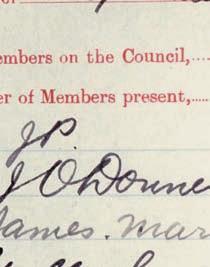 embers on the Council,....
er of Members present,.....
J.P.
J O'Donne
James. Mar